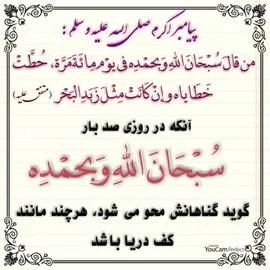 پیامبر اکرم صلی الله علیه وسلم:
من قالَ سُبْحَانَ اللهِ وَبِحَمْدِهِ فی یَوْمٍ مِائَةَ مَرَّة، حُطَّتْ
خَطایاه وَإنْ کَانَتْ مِثْلَ زَبَدِ الْبَحْر (متفق علیه)
آنکه در روزی صد بار
سُبْحَانَ اللهِ وَبِحَمْدِهِ
گوید گناهانش محو می شود، هرچند مانند
کف دریا باشد
YouCam Perfect